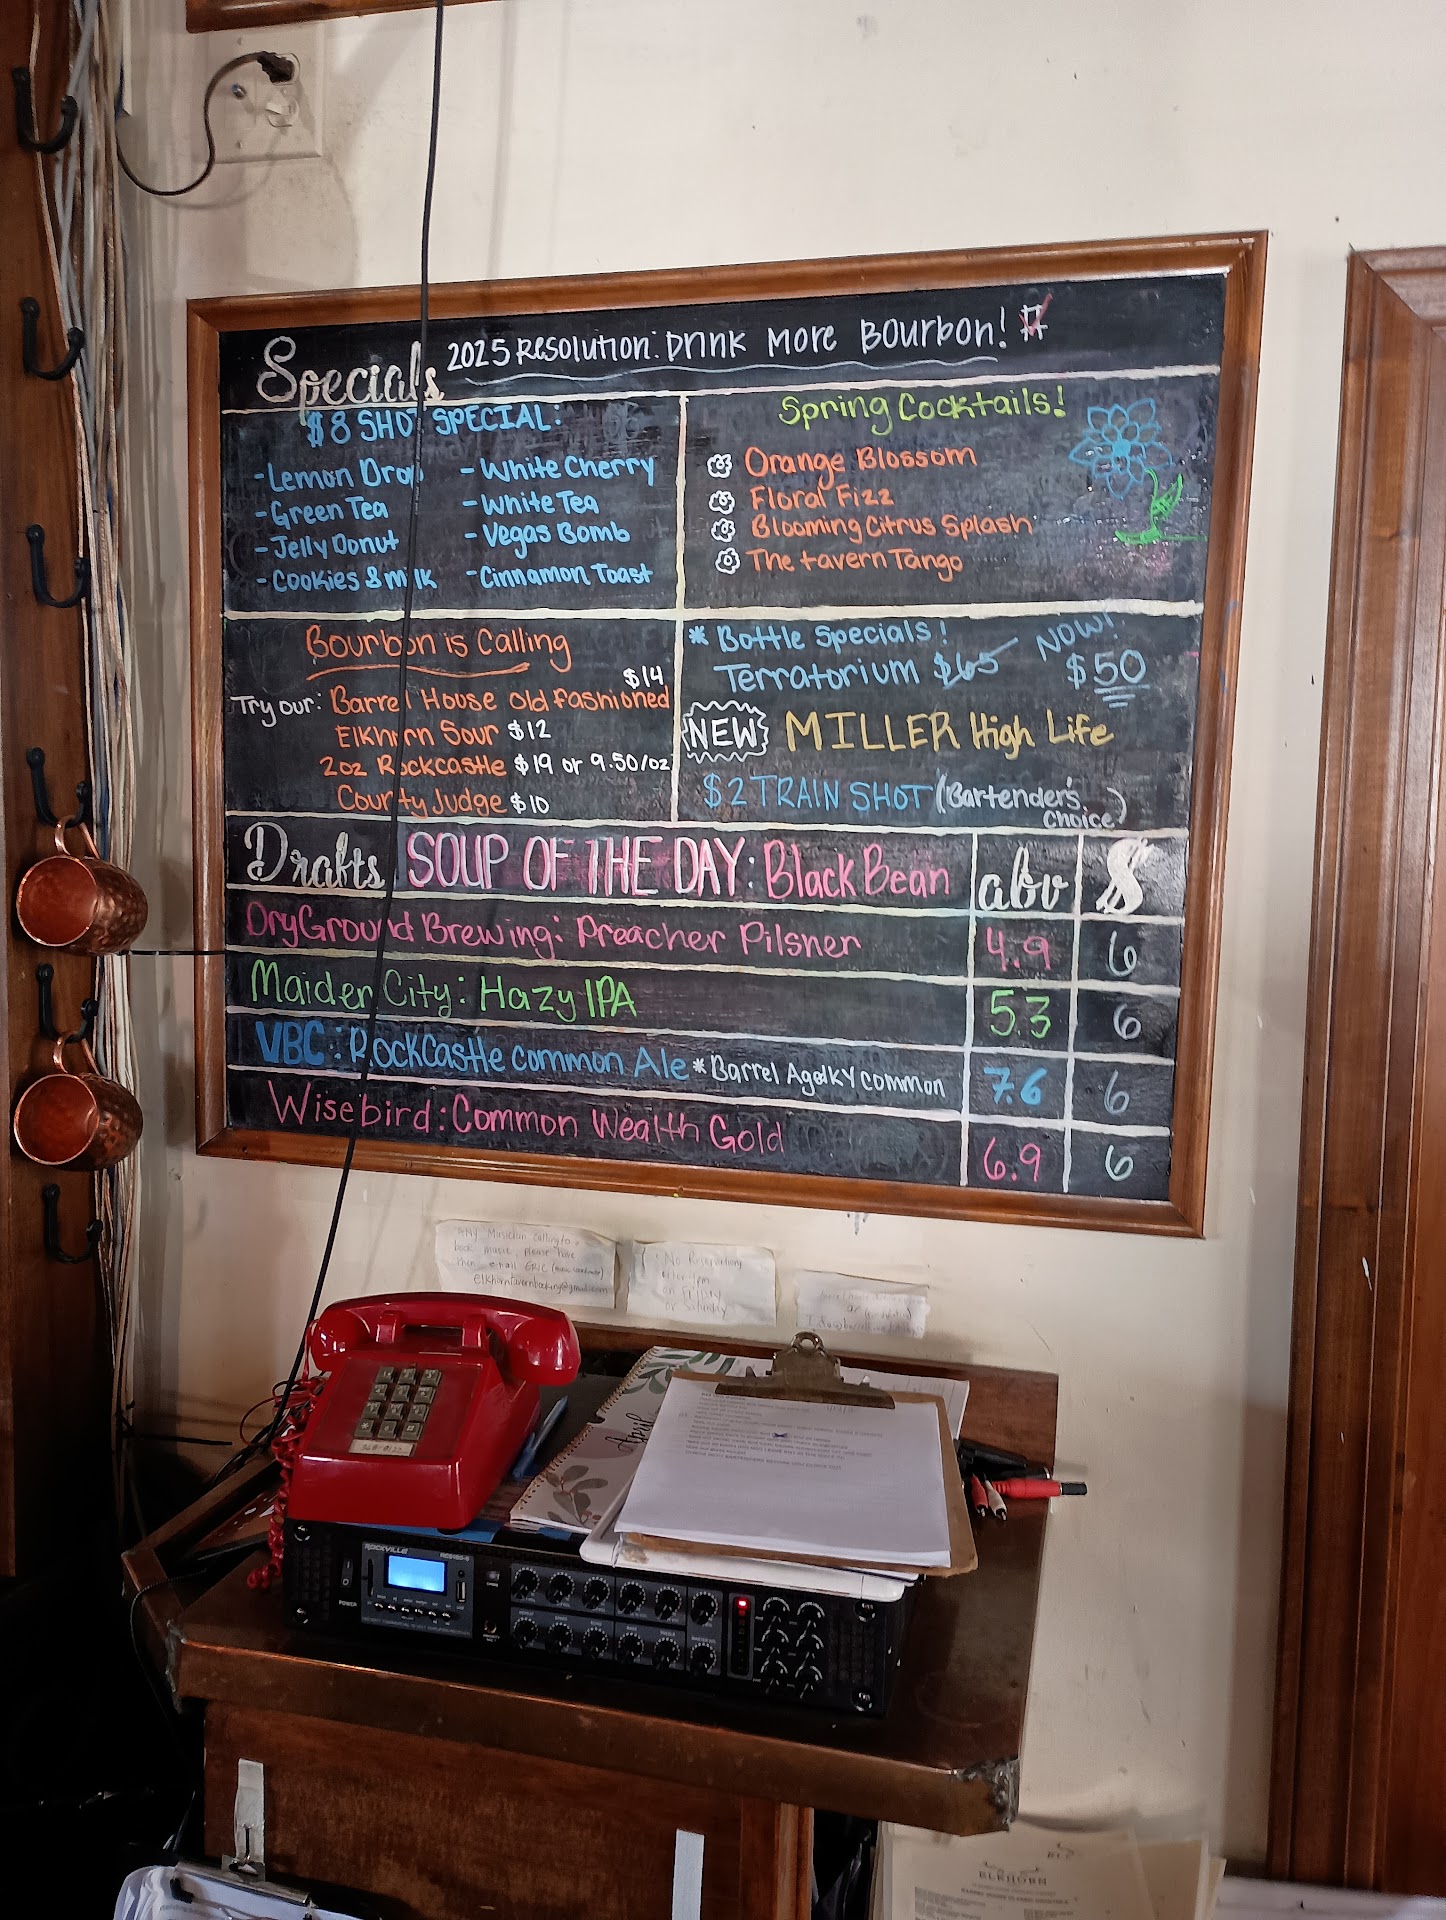 Specials
2025 Resolution: Drink More Bourbon!
$8 SHOT SPECIAL:
- Lemon Drop
- Green Tea
- Jelly Donut
- Cookies & milk
- White Cherry
- White Tea
- Vegas Bomb
- Cinnamon Toast
Spring Cocktails!
Orange Blossom
Floral Fizz
Blooming Citrus Splash
The tavern Tango
Bourbon is Calling
$14
Try our: Barrel House Old Fashioned
Elkhorn Sour $12
2oz Rockcastle $19 or 9.50/oz
County Judge $10
* Bottle Specials!
Terratorium $65 NOW! $50
NEW MILLER High Life
$2 TRAIN SHOT (Bartender's Choice)
Drafts SOUP OF THE DAY: Black Bean abv $
DryGround Brewing: Preacher Pilsner 4.9 6
Maiden City: Hazy IPA 5.3 6
VBC: Rockcastle common Ale * Barrel Aged KY common 7.6 6
Wisebird: Common Wealth Gold 6.9 6
Any Musician calling to
book music, please have
them email ERIC
elkhorntavernbooking@gmail.com
No Reservations
after 4pm
on Friday
or Saturday
April
ROCKVILLE
POWER
ELKHORN